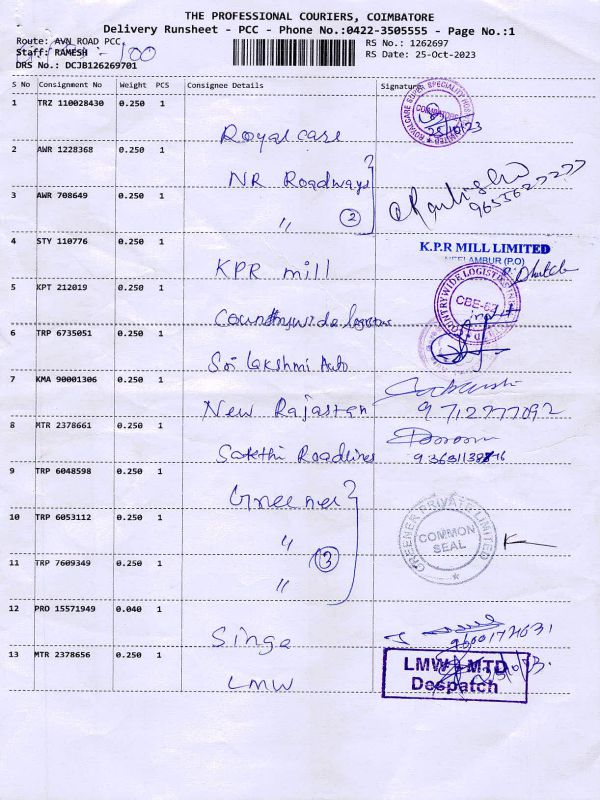 THE PROFESSIONAL COURIERS, COIMBATORE
Delivery Runsheet - PCC - Phone No.:0422-3505555 - Page No.:1
Route: AVN_ROAD PCC
RS No.: 1262697
Staff: RAMESH - 100
RS Date: 25-Oct-2023
DRS No.: DCJB126269701
S No Consignment No Weight PCS Consignee Details Signature
1 TRZ 110028430 0.250 1 Royal care
ROYALCARE SUPER SPECIALITY HOSPITAL LIMITED COIMBATORE
25/10/23
2 AWR 1228368 0.250 1 NR Roadways
3 AWR 708649 0.250 1 〃 (2)
4 STY 110776 0.250 1 KPR mill
K.P.R MILL LIMITED
NEELAMBUR (P.O)
5 KPT 212019 0.250 1 Countrywide logistics
COUNTRYWIDE LOGISTICS
6 TRP 6735051 0.250 1 Sri lakshmi Auto
7 KMA 90001306 0.250 1 New Rajastan
9712777092
8 MTR 2378661 0.250 1 Sakthi Roadlines
9 TRP 6048598 0.250 1 Greener
10 TRP 6053112 0.250 1 〃
GREENER PRIVATE LIMITED
COMMON SEAL
11 TRP 7609349 0.250 1 〃 (3)
12 PRO 15571949 0.040 1 Singa
13 MTR 2378656 0.250 1 LMW
LMW - MTD
Despatch